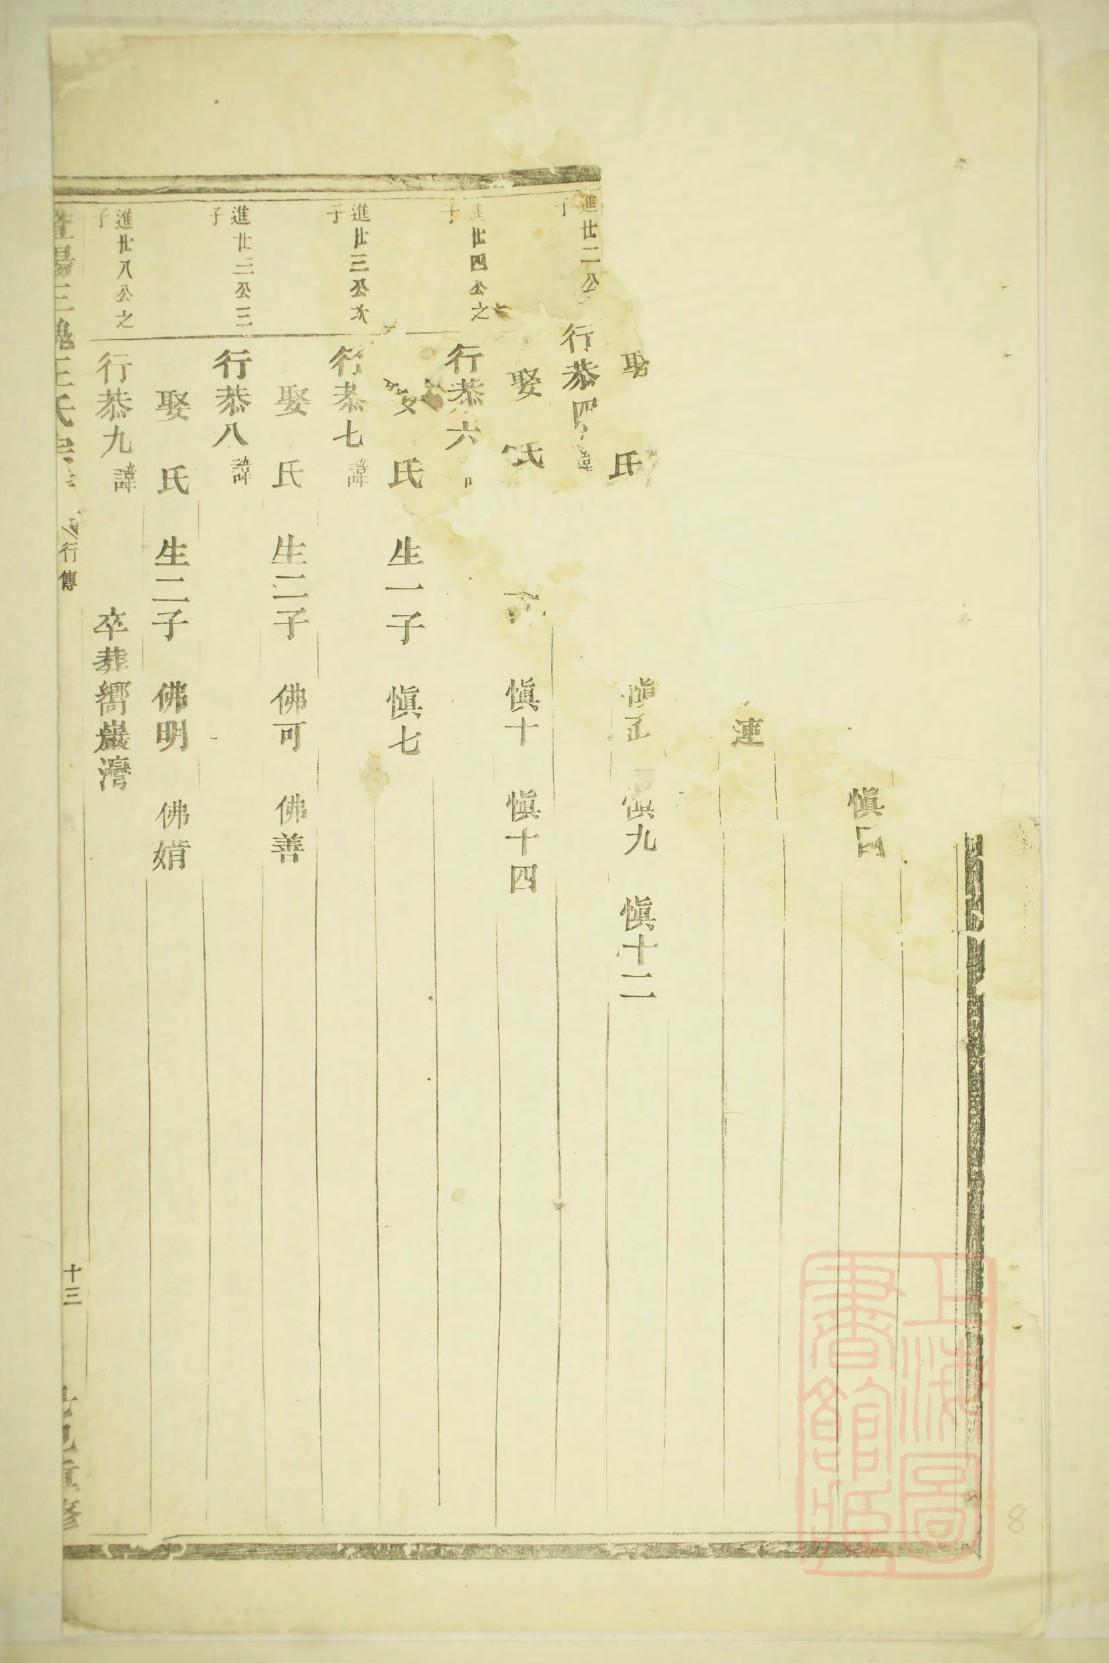 慎四
連
娶
氏
慎九
慎十二
進廿二公
行恭四
諱
娶
氏
慎十
慎十四
進廿四公之
子
行恭六
氏
生一子
慎七
進廿三公次
子
行恭七
諱
娶
氏
生二子
佛可
佛善
進廿三公三
子
行恭八
諱
娶
氏
生二子
佛明
佛
進廿八公之
子
行恭九
諱
卒葬嚮巖灣
暨陽三槐王氏宗
行傳
十三
重修
上海圖
書館藏
8